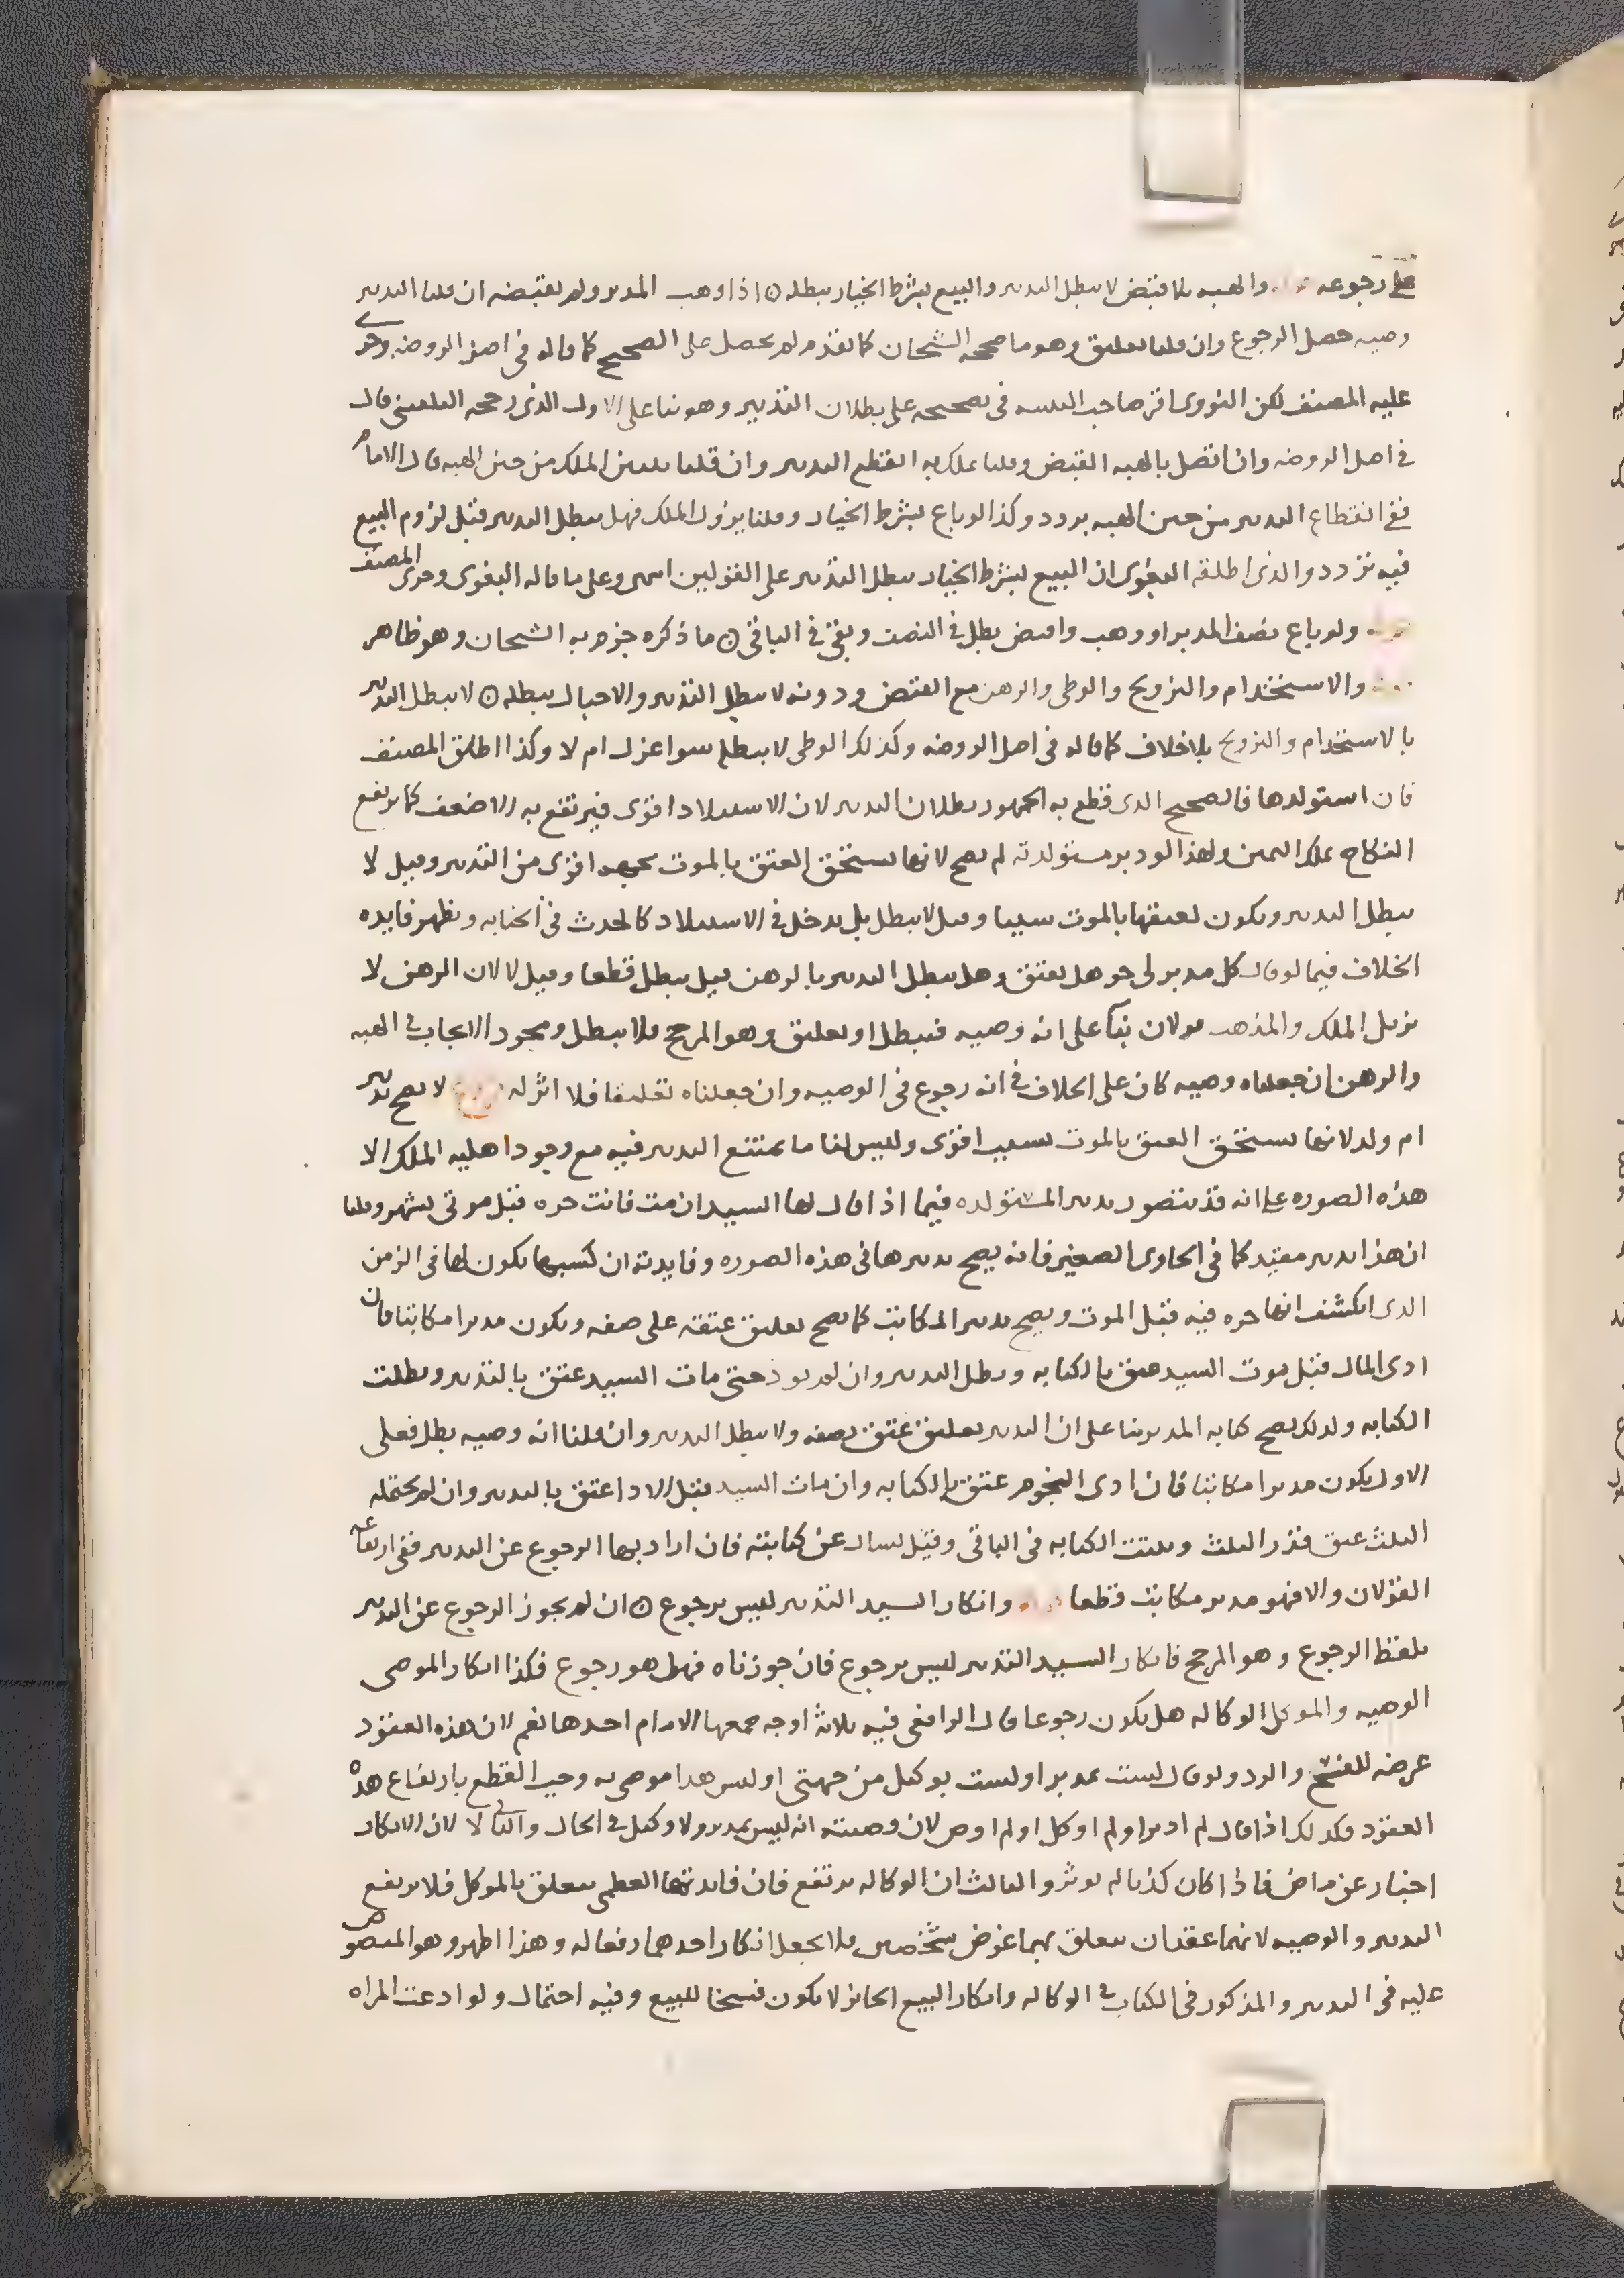 على رجوعه والهبه بلا قبض لا يبطل التدبير والبيع بشرط الخيار يبطله ۞ اذا وهب المدبر ولم يقبضه ان قلنا التدبير
وصيه حصل الرجوع وان قلنا تعليق وهو ما صححه الشيخان كما تقدم لم يحصل على الصحيح كما قاله في اصل الروضه وجرى
عليه المصنف لكن النووى اقر صاحب التنبيه في تصحيحه على بطلان التدبير وهو بنا على الاول الذى رجحه البلقينى قال
في اصل الروضه وان اتصل بالهبه القبض وقلنا يملك به انقطع التدبير وان قلنا يتبين الملك من حين الهبه قال الامام
ففى انقطاع التدبير من حين الهبه تردد وكذا لو باع بشرط الخيار وقلنا يزول الملك فهل يبطل التدبير قبل لزوم البيع
فيه تردد والذى اطلقه البغوى ان البيع بشرط الخيار يبطل التدبير على القولين انتهى وعلى ما قاله البغوى وجرى المصنف
ولو باع نصف المدبر او وهب واقبض بطل في النصف وبقى في الباقى ۞ ما ذكره جزم به الشيخان وهو ظاهر
والاستخدام والتزويج والوطى والرهن مع القبض ودونه لا يبطل التدبير والاحبال يبطله ۞ لا يبطل التدبير
بالاستخدام والتزويج بلا خلاف كما قاله في اصل الروضه وكذلك الوطى لا يبطل سوا عزل ام لا وكذا اطلق المصنف
فان استولدها فالصحيح الذى قطع به الجمهور بطلان التدبير لان الاستيلاد اقوى فيرتفع به الاضعف كما يرتفع
النكاح بملك اليمين ولهذا لو دبر مستولدته لم يصح لانها تستحق العتق بالموت بجهه اقوى من التدبير وقيل لا
يبطل التدبير ويكون لعتقها بالموت سببا وقيل لا يبطل بل يدخل في الاستيلاد كالحدث في الجنابه وتظهر فايده
الخلاف فيما لو قال كل مدبر لى حر هل يعتق وهل يبطل التدبير بالرهن قيل يبطل قطعا وقيل لا لان الرهن لا
يزيل الملك والمذهب قولان بنآ على انه وصيه فيبطل او تعليق وهو المرجح فلا يبطل ومجرد الايجاب في الهبه
والرهن ان جعلناه وصيه كان على الخلاف في انه رجوع في الوصيه وان جعلناه تعليقا فلا اثر له لا يصح تدبير
ام ولد لانها تستحق العتق بالموت بسبب اقوى وليس لنا ما يمتنع التدبير فيه مع وجود اهليه الملك الا
هذه الصوره على انه قد يتصور تدبير المستولده فيما اذا قال لها السيد ان مت فانت حره قبل موتى بشهر وقلنا
ان هذا تدبير مقيد كما في الحاوى الصغير فانه يصح تدبيرها في هذه الصوره وفايدته ان كسبها يكون لها في الزمن
الذى انكشف انها حره فيه قبل الموت ويصح تدبير المكاتب كما يصح تعليق عتقه على صفه ويكون مدبرا مكاتبا فان
ادى المال قبل موت السيد عتق بالكتابه وبطل التدبير وان لم يود حتى مات السيد عتق بالتدبير وبطلت
الكتابه ولذلك يصح كتابه المدبر بنا على ان التدبير تعليق عتق بصفه ولا يبطل التدبير وان قلنا انه وصيه بطل فعلى
الاول يكون مدبرا مكاتبا فان ادى النجوم عتق بالكتابه وان مات السيد قبل الادا عتق بالتدبير وان لم يحتمله
الثلث عتق قدر الثلث وبقيت الكتابه في الباقى وقيل يسال عن كتابته فان اراد بها الرجوع عن التدبير ففى ارتفاعه
القولان والا فهو مدبر مكاتب قطعا وانكار السيد التدبير ليس برجوع ۞ ان لم يجوز الرجوع عن التدبير
بلفظ الرجوع وهو المرجح فانكار السيد التدبير ليس برجوع فان جوزناه فهل هو رجوع فكذا انكار الموصى
الوصيه والموكل الوكاله هل يكون رجوعا قال الرافعى فيه ثلاثة اوجه جمعها الامام احدها نعم لان هذه العقود
عرضه للفسخ والرد ولو قال لست بمدبر او لست بوكيل من جهتى او ليس هذا موصى به وجب القطع بارتفاع هذه
العقود فكذلك اذا قال لم ادبر او لم اوكل او لم اوص لان وصيته انه ليس بمدبر ولا وكيل في الحال والثانى لا لان الانكار
اخبار عن ماض فاذا كان كذبا لم يوثر والثالث ان الوكاله ترتفع فان فايدتها العظمى تتعلق بالموكل فلا يرتفع
التدبير والوصيه لانهما عقدان يتعلق بهما غرض شخصين فلا يجعل انكار احدهما رفعا له وهذا اظهر وهو المنصوص
عليه في التدبير والمذكور في الكتاب في الوكاله وانكار البيع الجايز لا يكون فسخا للبيع وفيه احتمال ولو ادعت المراه